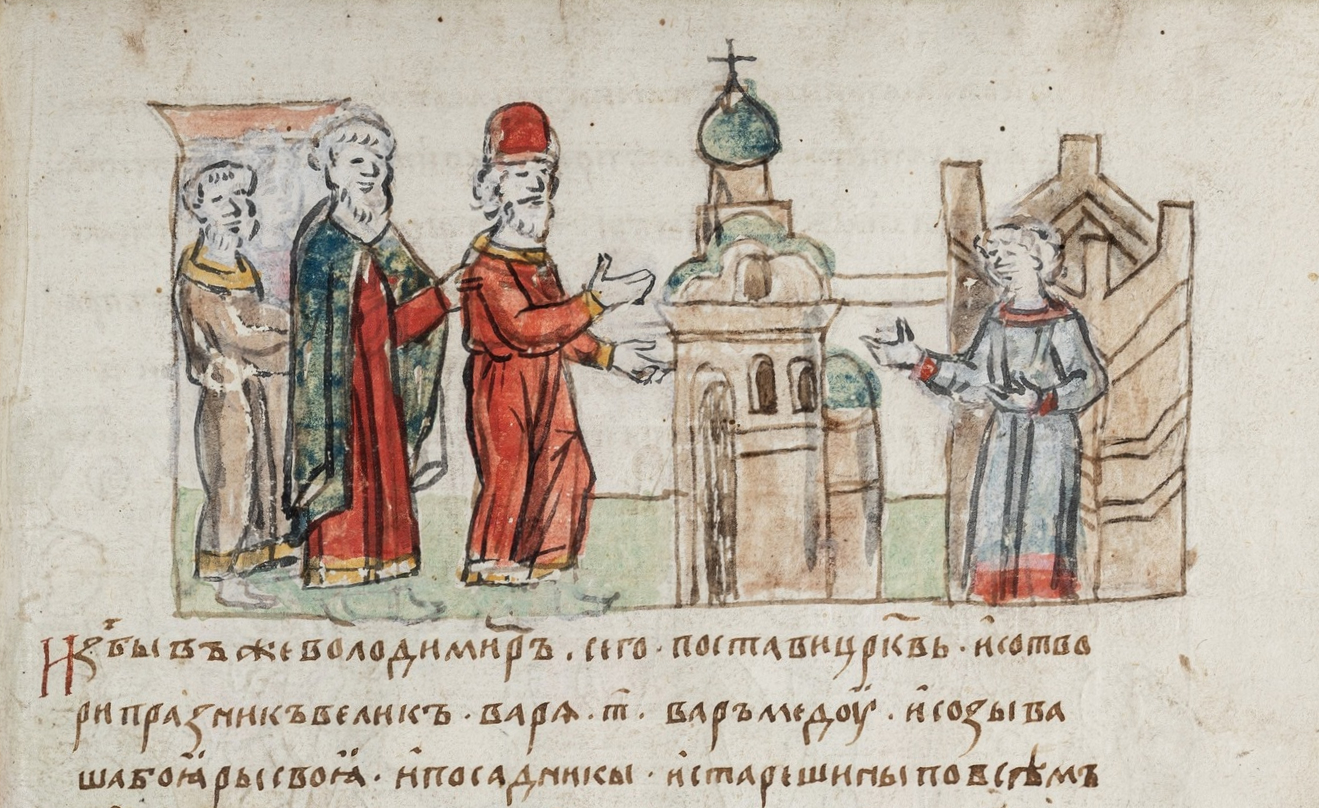 Избывъ же володимиръ · сего · постави црк҃вь · и сотво
ри праздникъ великъ · варѧ · т҃ · варъ медоу · и созыва
ша боꙗры своꙗ · и посадникы · и старешины по всѣмъ